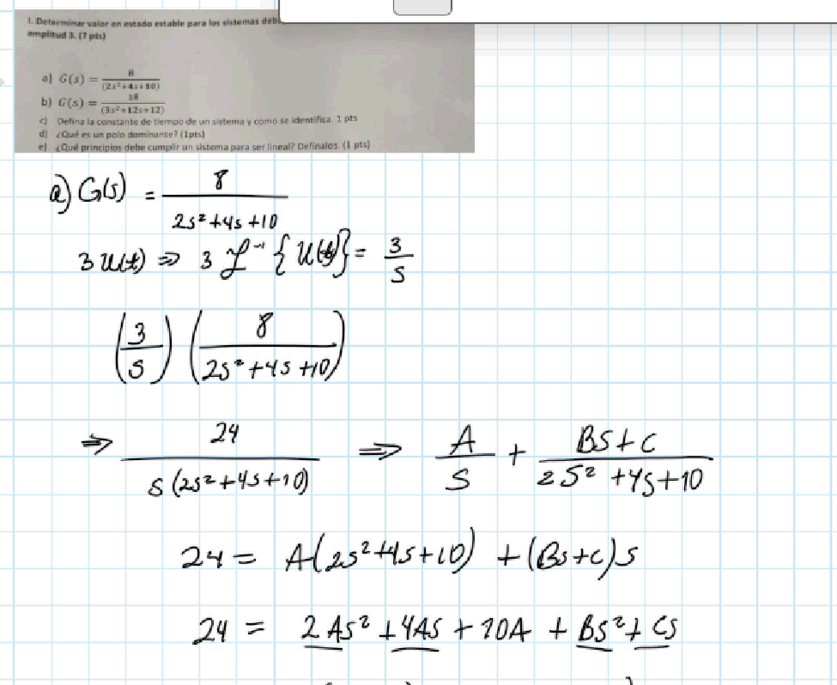 I. Determinar valor en estado estable para los sistemas deb
amplitud 3. (7 pts)
a) G(s) = 8/(2s²+4s+10)
b) G(s) = 18/(3s²+12s+12)
c) Defina la constante de tiempo de un sistema y como se identifica. 1 pts
d) ¿Qué es un polo dominante? (1pts)
e) ¿Qué principios debe cumplir un sistema para ser lineal? Definalos. (1 pts)
a) G(s) = 8/(2s²+4s+10)
3 u(t) ⇒ 3 ℒ⁻¹{u(t)} = 3/s
(3/s) (8/(2s²+4s+10))
⇒ 24/(s(2s²+4s+10)) ⇒ A/s + (Bs+C)/(2s²+4s+10)
24 = A(2s²+4s+10) + (Bs+C)s
24 = 2As² + 4As + 10A + Bs² + Cs